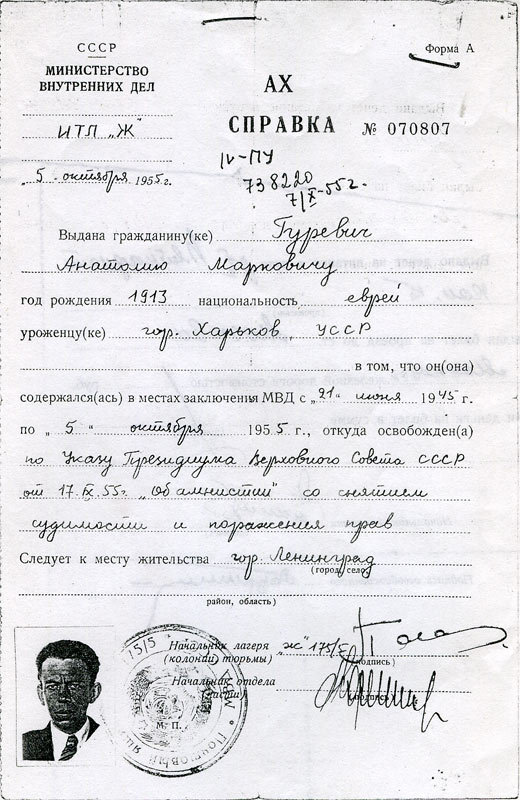 СССР
Форма А
МИНИСТЕРСТВО
ВНУТРЕННИХ ДЕЛ
ИТЛ „Ж"
„5" октября 1955г.
АХ
СПРАВКА № 070807
IV-ПУ
738220
7/X-55г.
Выдана гражданину(ке) Гуревич
Анатолию Марковичу
год рождения 1913 национальность еврей
уроженцу(ке) гор. Харьков, УССР
в том, что он(она)
содержался(ась) в местах заключения МВД с „21" июня 1945 г.
по „5" октября 1955 г., откуда освобожден(а)
по Указу Президиума Верховного Совета СССР
от 17.IX.55г. „Об амнистии" со снятием
судимости и поражения прав
Следует к месту жительства гор. Ленинград
(город, село)
район, область)
Начальник лагеря „Ж" 175/5
(колонии, тюрьмы)
(подпись)
Начальник отдела
(части)
(подпись)
М. П.
Почтовый ящ
175/5